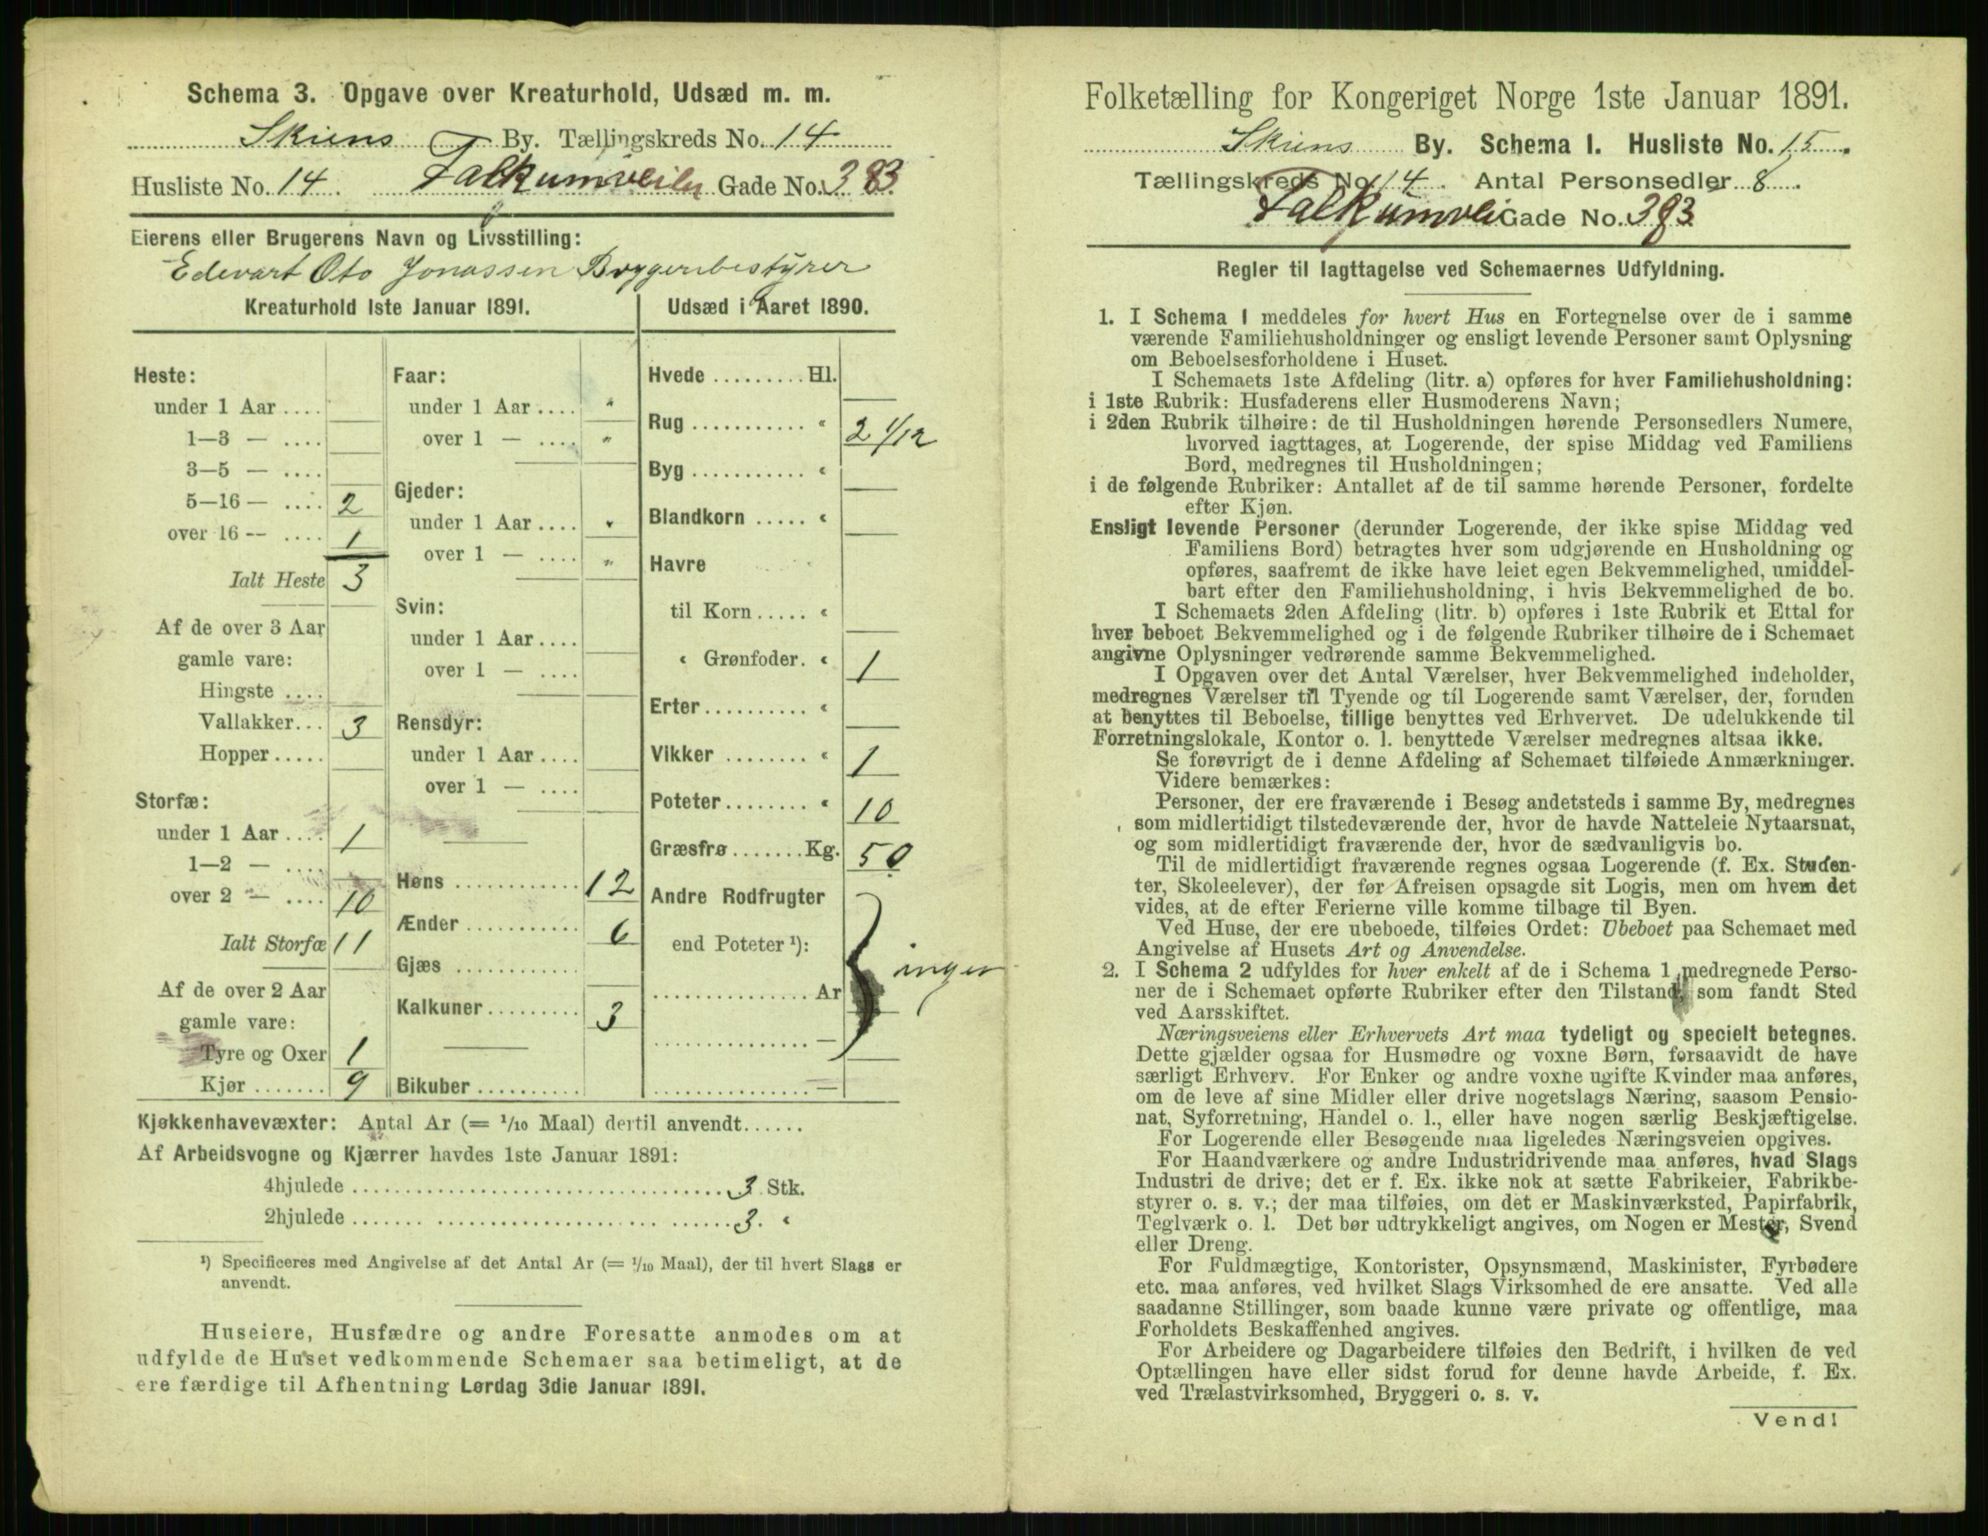 Schema 3. Opgave over Kreaturhold, Udsæd m. m.
Skiens By. Tællingskreds No. 14
Husliste No. 14. Falkumveien Gade No. 383.
Eierens eller Brugerens Navn og Livsstilling:
Edevart Oto Jonassen Bryggeribestyrer
Kreaturhold 1ste Januar 1891.
Heste:
under 1 Aar ....
1—3 — ....
3—5 — ....
5—16 — .... 2
over 16 — .... 1
Ialt Heste 3
Af de over 3 Aar
gamle vare:
Hingste ....
Vallakker... 3
Hopper.....
Storfæ:
under 1 Aar .... 1
1—2 — ....
over 2 — .... 10
Ialt Storfæ 11
Af de over 2 Aar
gamle vare:
Tyre og Oxer 1
Kjør ....... 9
Faar:
under 1 Aar .... "
over 1 — .... "
Gjeder:
under 1 Aar .... "
over 1 — .... "
Svin:
under 1 Aar ....
over 1 — ....
Rensdyr:
under 1 Aar ....
over 1 — ....
Høns ............ 12
Ænder ........... 6
Gjæs ............
Kalkuner ......... 3
Bikuber ..........
Udsæd i Aaret 1890.
Hvede ......... Hl.
Rug ........... " 2 1/12
Byg ........... "
Blandkorn ..... "
Havre
til Korn ..... "
" Grønfoder. " 1
Erter .......... "
Vikker ........ " 1
Poteter ........ " 10
Græsfrø ....... Kg. 50
Andre Rodfrugter
end Poteter ¹):
............... Ar ingen
............... —
............... —
Kjøkkenhavevæxter: Antal Ar (= 1/10 Maal) dertil anvendt......
Af Arbeidsvogne og Kjærrer havdes 1ste Januar 1891:
4hjulede ........ 3 Stk.
2hjulede ........ 3. "
¹) Specificeres med Angivelse af det Antal Ar (= 1/10 Maal), der til hvert Slags er
anvendt.
Huseiere, Husfædre og andre Foresatte anmodes om at
udfylde de Huset vedkommende Schemaer saa betimeligt, at de
ere færdige til Afhentning Lørdag 3die Januar 1891.
Folketælling for Kongeriget Norge 1ste Januar 1891.
Skiens By. Schema I. Husliste No. 15.
Tællingskreds No. 14. Antal Personsedler 8.
Falkumvei Gade No. 383
Regler til Iagttagelse ved Schemaernes Udfyldning.
1. I Schema I meddeles for hvert Hus en Fortegnelse over de i samme
værende Familiehusholdninger og ensligt levende Personer samt Oplysning
om Beboelsesforholdene i Huset.
I Schemaets 1ste Afdeling (litr. a) opføres for hver Familiehusholdning:
i 1ste Rubrik: Husfaderens eller Husmoderens Navn;
i 2den Rubrik tilhøire: de til Husholdningen hørende Personsedlers Numere,
hvorved iagttages, at Logerende, der spise Middag ved Familiens
Bord, medregnes til Husholdningen;
i de følgende Rubriker: Antallet af de til samme hørende Personer, fordelte
efter Kjøn.
Ensligt levende Personer (derunder Logerende, der ikke spise Middag ved
Familiens Bord) betragtes hver som udgjørende en Husholdning og
opføres, saafremt de ikke have leiet egen Bekvemmelighed, umiddel-
bart efter den Familiehusholdning, i hvis Bekvemmelighed de bo.
I Schemaets 2den Afdeling (litr. b) opføres i 1ste Rubrik et Ettal for
hver beboet Bekvemmelighed og i de følgende Rubriker tilhøire de i Schemaet
angivne Oplysninger vedrørende samme Bekvemmelighed.
I Opgaven over det Antal Værelser, hver Bekvemmelighed indeholder,
medregnes Værelser til Tyende og til Logerende samt Værelser, der, foruden
at benyttes til Beboelse, tillige benyttes ved Erhvervet. De udelukkende til
Forretningslokale, Kontor o. l. benyttede Værelser medregnes altsaa ikke.
Se forøvrigt de i denne Afdeling af Schemaet tilføiede Anmærkninger.
Videre bemærkes:
Personer, der ere fraværende i Besøg andetsteds i samme By, medregnes
som midlertidigt tilstedeværende der, hvor de havde Natteleie Nytaarsnat,
og som midlertidigt fraværende der, hvor de sædvanligvis bo.
Til de midlertidigt fraværende regnes ogsaa Logerende (f. Ex. Studen-
ter, Skoleelever), der før Afreisen opsagde sit Logis, men om hvem det
vides, at de efter Ferierne ville komme tilbage til Byen.
Ved Huse, der ere ubeboede, tilføies Ordet: Ubeboet paa Schemaet med
Angivelse af Husets Art og Anvendelse.
2. I Schema 2 udfyldes for hver enkelt af de i Schema 1 medregnede Perso-
ner de i Schemaet opførte Rubriker efter den Tilstand, som fandt Sted
ved Aarsskiftet.
Næringsveiens eller Erhvervets Art maa tydeligt og specielt betegnes.
Dette gjælder ogsaa for Husmødre og voxne Børn, forsaavidt de have
særligt Erhverv. For Enker og andre voxne ugifte Kvinder maa anføres,
om de leve af sine Midler eller drive nogetslags Næring, saasom Pensio-
nat, Syforretning, Handel o. l., eller have nogen særlig Beskjæftigelse.
For Logerende eller Besøgende maa ligeledes Næringsveien opgives.
For Haandværkere og andre Industridrivende maa anføres, hvad Slags
Industri de drive; det er f. Ex. ikke nok at sætte Fabrikeier, Fabrikbe-
styrer o. s. v.; der maa tilføies, om det er Maskinværksted, Papirfabrik,
Teglværk o. l. Det bør udtrykkeligt angives, om Nogen er Mester, Svend
eller Dreng.
For Fuldmægtige, Kontorister, Opsynsmænd, Maskinister, Fyrbødere
etc. maa anføres, ved hvilket Slags Virksomhed de ere ansatte. Ved alle
saadanne Stillinger, som baade kunne være private og offentlige, maa
Forholdets Beskaffenhed angives.
For Arbeidere og Dagarbeidere tilføies den Bedrift, i hvilken de ved
Optællingen have eller sidst forud for denne havde Arbeide, f. Ex.
ved Trælastvirksomhed, Bryggeri o. s. v.
Vend!